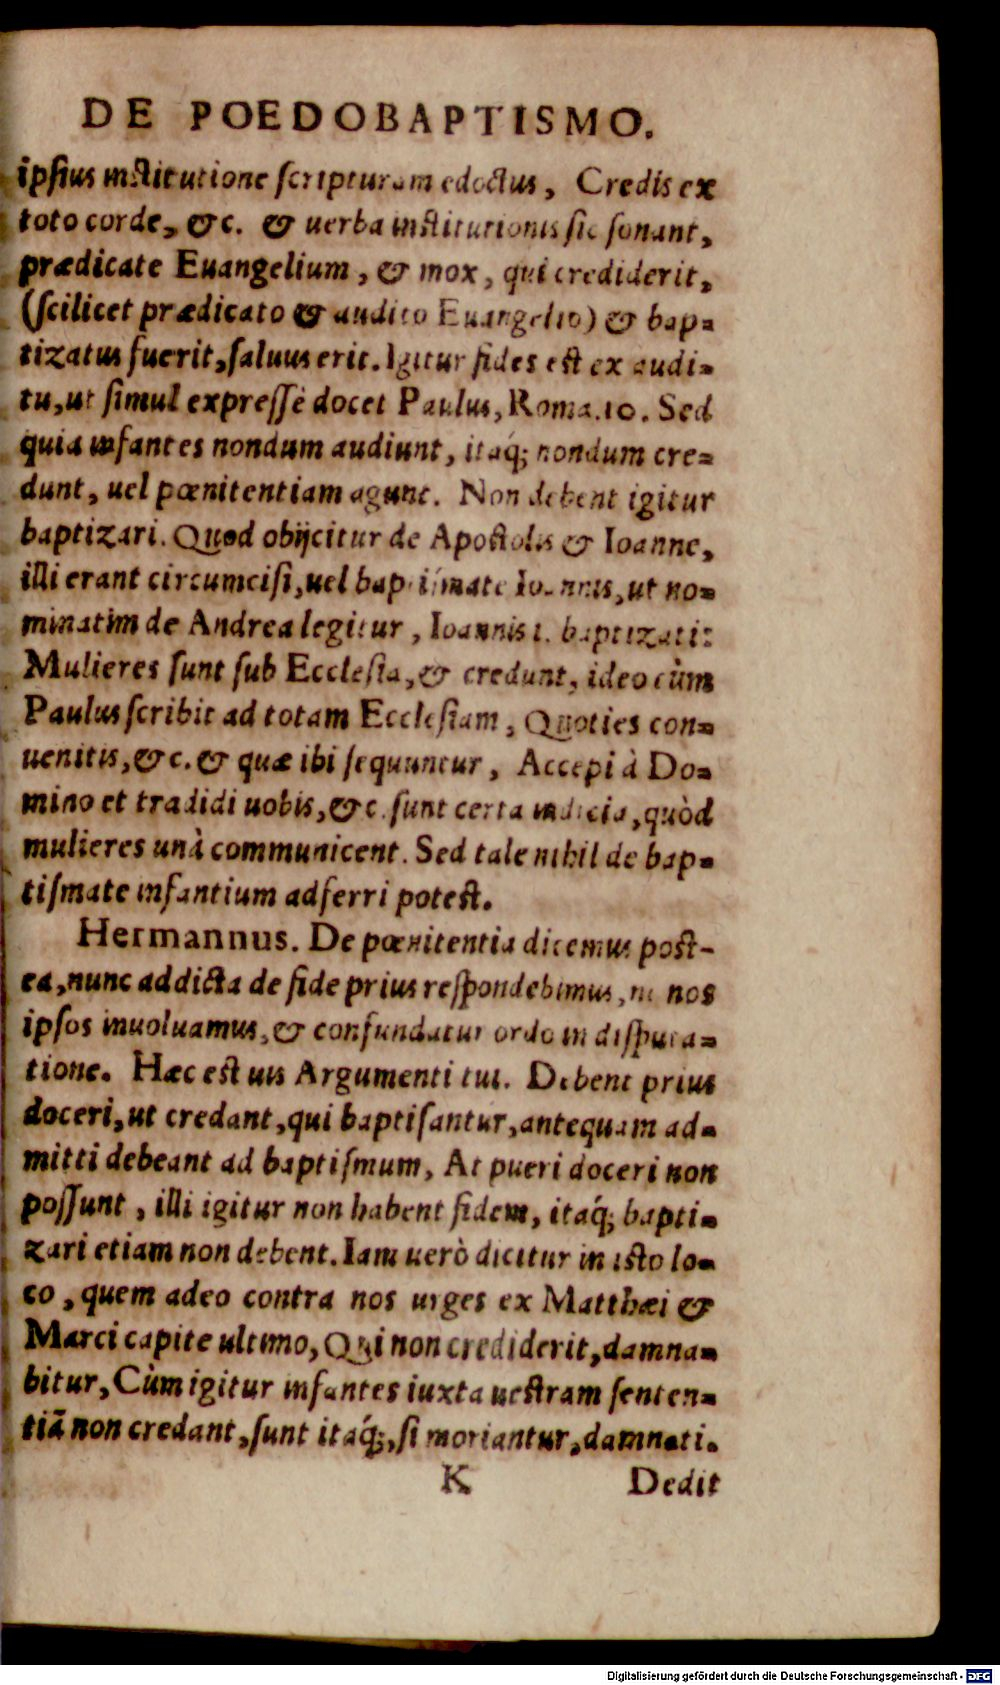 DE POEDOBAPTISMO.
ipsius institutione scripturam edoctus, Credis ex
toto corde, &c. & uerba institutionis sic sonant,
prædicate Euangelium, & mox, qui crediderit,
(scilicet prædicato & audito Euangelio) & bap-
tizatus fuerit, saluus erit. Igitur fides est ex audi-
tu, ut simul expressè docet Paulus, Roma.10. Sed
quia infantes nondum audiunt, itaq́; nondum cre-
dunt, uel pœnitentiam agunt. Non debent igitur
baptizari. Quod obijcitur de Apostolis & Ioanne,
illi erant circumcisi, uel baptismate Ioannis, ut no-
minatim de Andrea legitur, Ioannis 1. baptizati:
Mulieres sunt sub Ecclesia, & credunt, ideo cùm
Paulus scribit ad totam Ecclesiam, Quoties con-
uenitis, &c. & quæ ibi sequuntur, Accepi à Do-
mino et tradidi uobis, &c. sunt certa indicia, quòd
mulieres unà communicent. Sed tale nihil de bap-
tismate infantium adferri potest.
Hermannus. De pœnitentia dicemus post-
ea, nunc addicta de fide prius respondebimus, ne nos
ipsos inuoluamus, & confundatur ordo in disputa-
tione. Hæc est uis Argumenti tui. Debent prius
doceri, ut credant, qui baptisantur, antequam ad-
mitti debeant ad baptismum, At pueri doceri non
possunt, illi igitur non habent fidem, itaq́; bapti-
zari etiam non debent. Iam uerò dicitur in isto lo-
co, quem adeo contra nos urges ex Matthæi &
Marci capite ultimo, Qui non crediderit, damna-
bitur, Cùm igitur infantes iuxta uestram senten-
tiã non credant, sunt itaq́;, si moriantur, damnati.
K Dedit
Digitalisierung gefördert durch die Deutsche Forschungsgemeinschaft - DFG